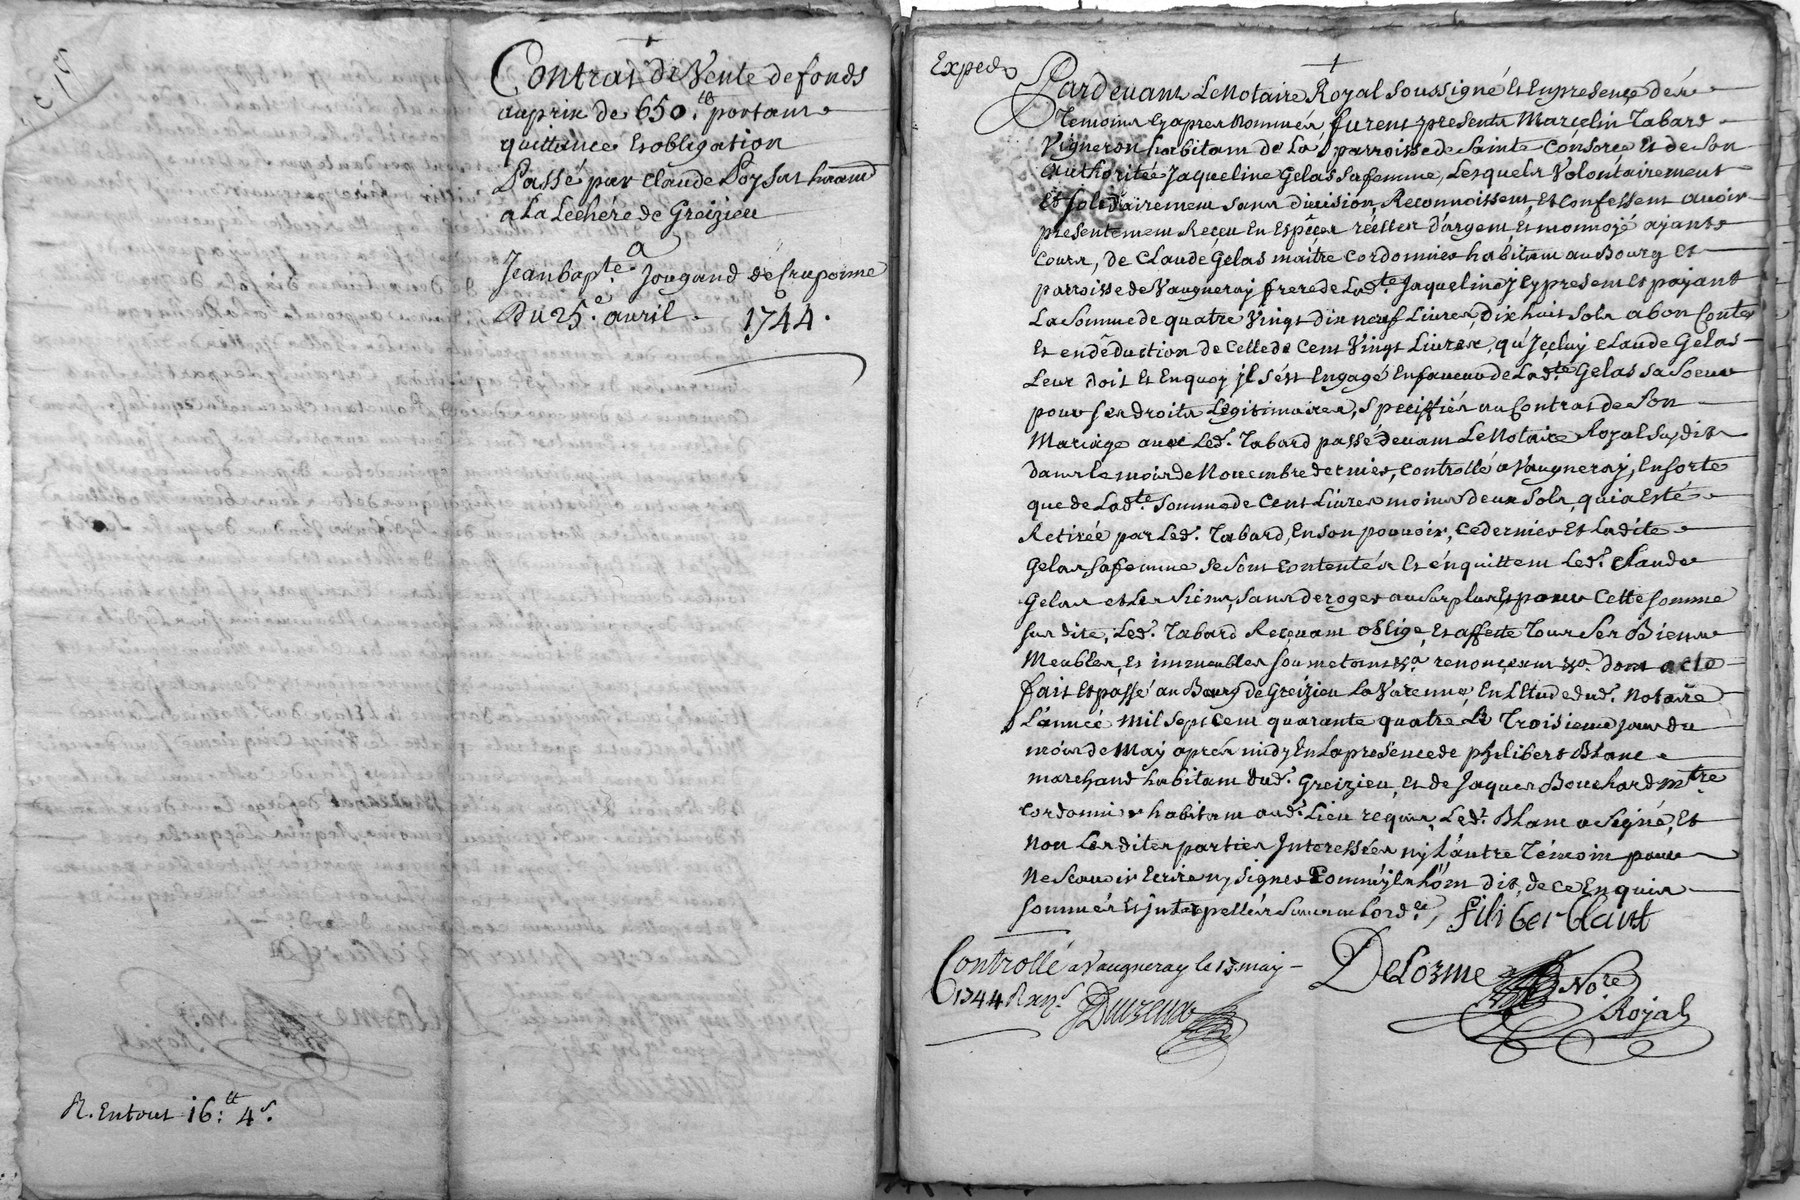 Contrat de Vente de fonds
au prix de 650.tt portant
quittance Et obligation
Passé par Claude Poyсat
a La Lechére de Greizieu
a
Jean bapte. Jougand de Cruponne
Du 25.e avril - 1744.
R. En tout 16:tt 4s.
Exped
Pardevant Le Notaire Royal Soussigné Et En presence dés
Témoins Cy apres Nommés, furent presents Marcelin Tabard
Vigneron habitant de La parroisse de Sainte Consorce Et de Son
Authoritée Jaqueline Gelas Sa femme, Lesquels Volontairement
Et Solidairement Sans division, Reconnoissent, Et Confessent avoir
presentement Reçeu En Espéces réelles d'argent Et monnoyé ayant
Cours, de Claude Gelas maitre Cordonnier habitant au Bourg Et
parroisse de Vaugneray frere de Ladte. Jaqueline Jcy present Et payant
La Somme de quatre Vingt dix neuf Livres, dix huit Sols a bon Conte
Et en déduction de Celle de Cent Vingt Livres, qu'Jceluy Claude Gelas
Leur doit Et En quoy jl s'ést Engagé En faveur de Ladte. Gelas Sa Soeur
pour Ses droits Legitimaires, Speciffiés au Contrat de Son
Mariage avec Led. Tabard passé devant Le Notaire Royal Susdit
dans Le mois de Novembre dernier, Controllé a Vaugneray, En Sorte
que de Ladte. Somme de Cent Livres moins deux Sols, qui a Esté
Retirée par Led. Tabard, En Son pouvoir, Ce dernier Et Ladite
Gelas Sa femme Se Sont Contentés Et énquittent Led. Claude
Gelas et Les Siens, Sans deroger au Surplus, Et pour Cette Somme
Sus dite, Led. Tabard Recevant oblige, Et affecte Tous Ses Biens
Meubles, Et immeubles Soumetant &a. renonçeant &a. Dont acte
fait Et passé au Bourg de Greizieu La Varenne En L'Etude dud. Notaire
L'année Mil Sept Cent quarante quatre Le Troisieme jour du
mois de May aprés midy En La presence de philibert Blanc
marchand habitant dud. Greizieu, Et de Jaques Bouchard mtre
Cordonnier habitant aud. Lieu requis, Led. Blanc a Signé, Et
Non Les dites parties Interessées ny L'autre Témoin pour
Ne Scavoir Ecrire ny Signer Comme jls L'ont dit, de Ce Enquis
Sommés Et Interpellés Suivant L'ordce, filiber blanc
Controllé a Vaugneray le 13 may
1744
DeLorme Nore
Royal